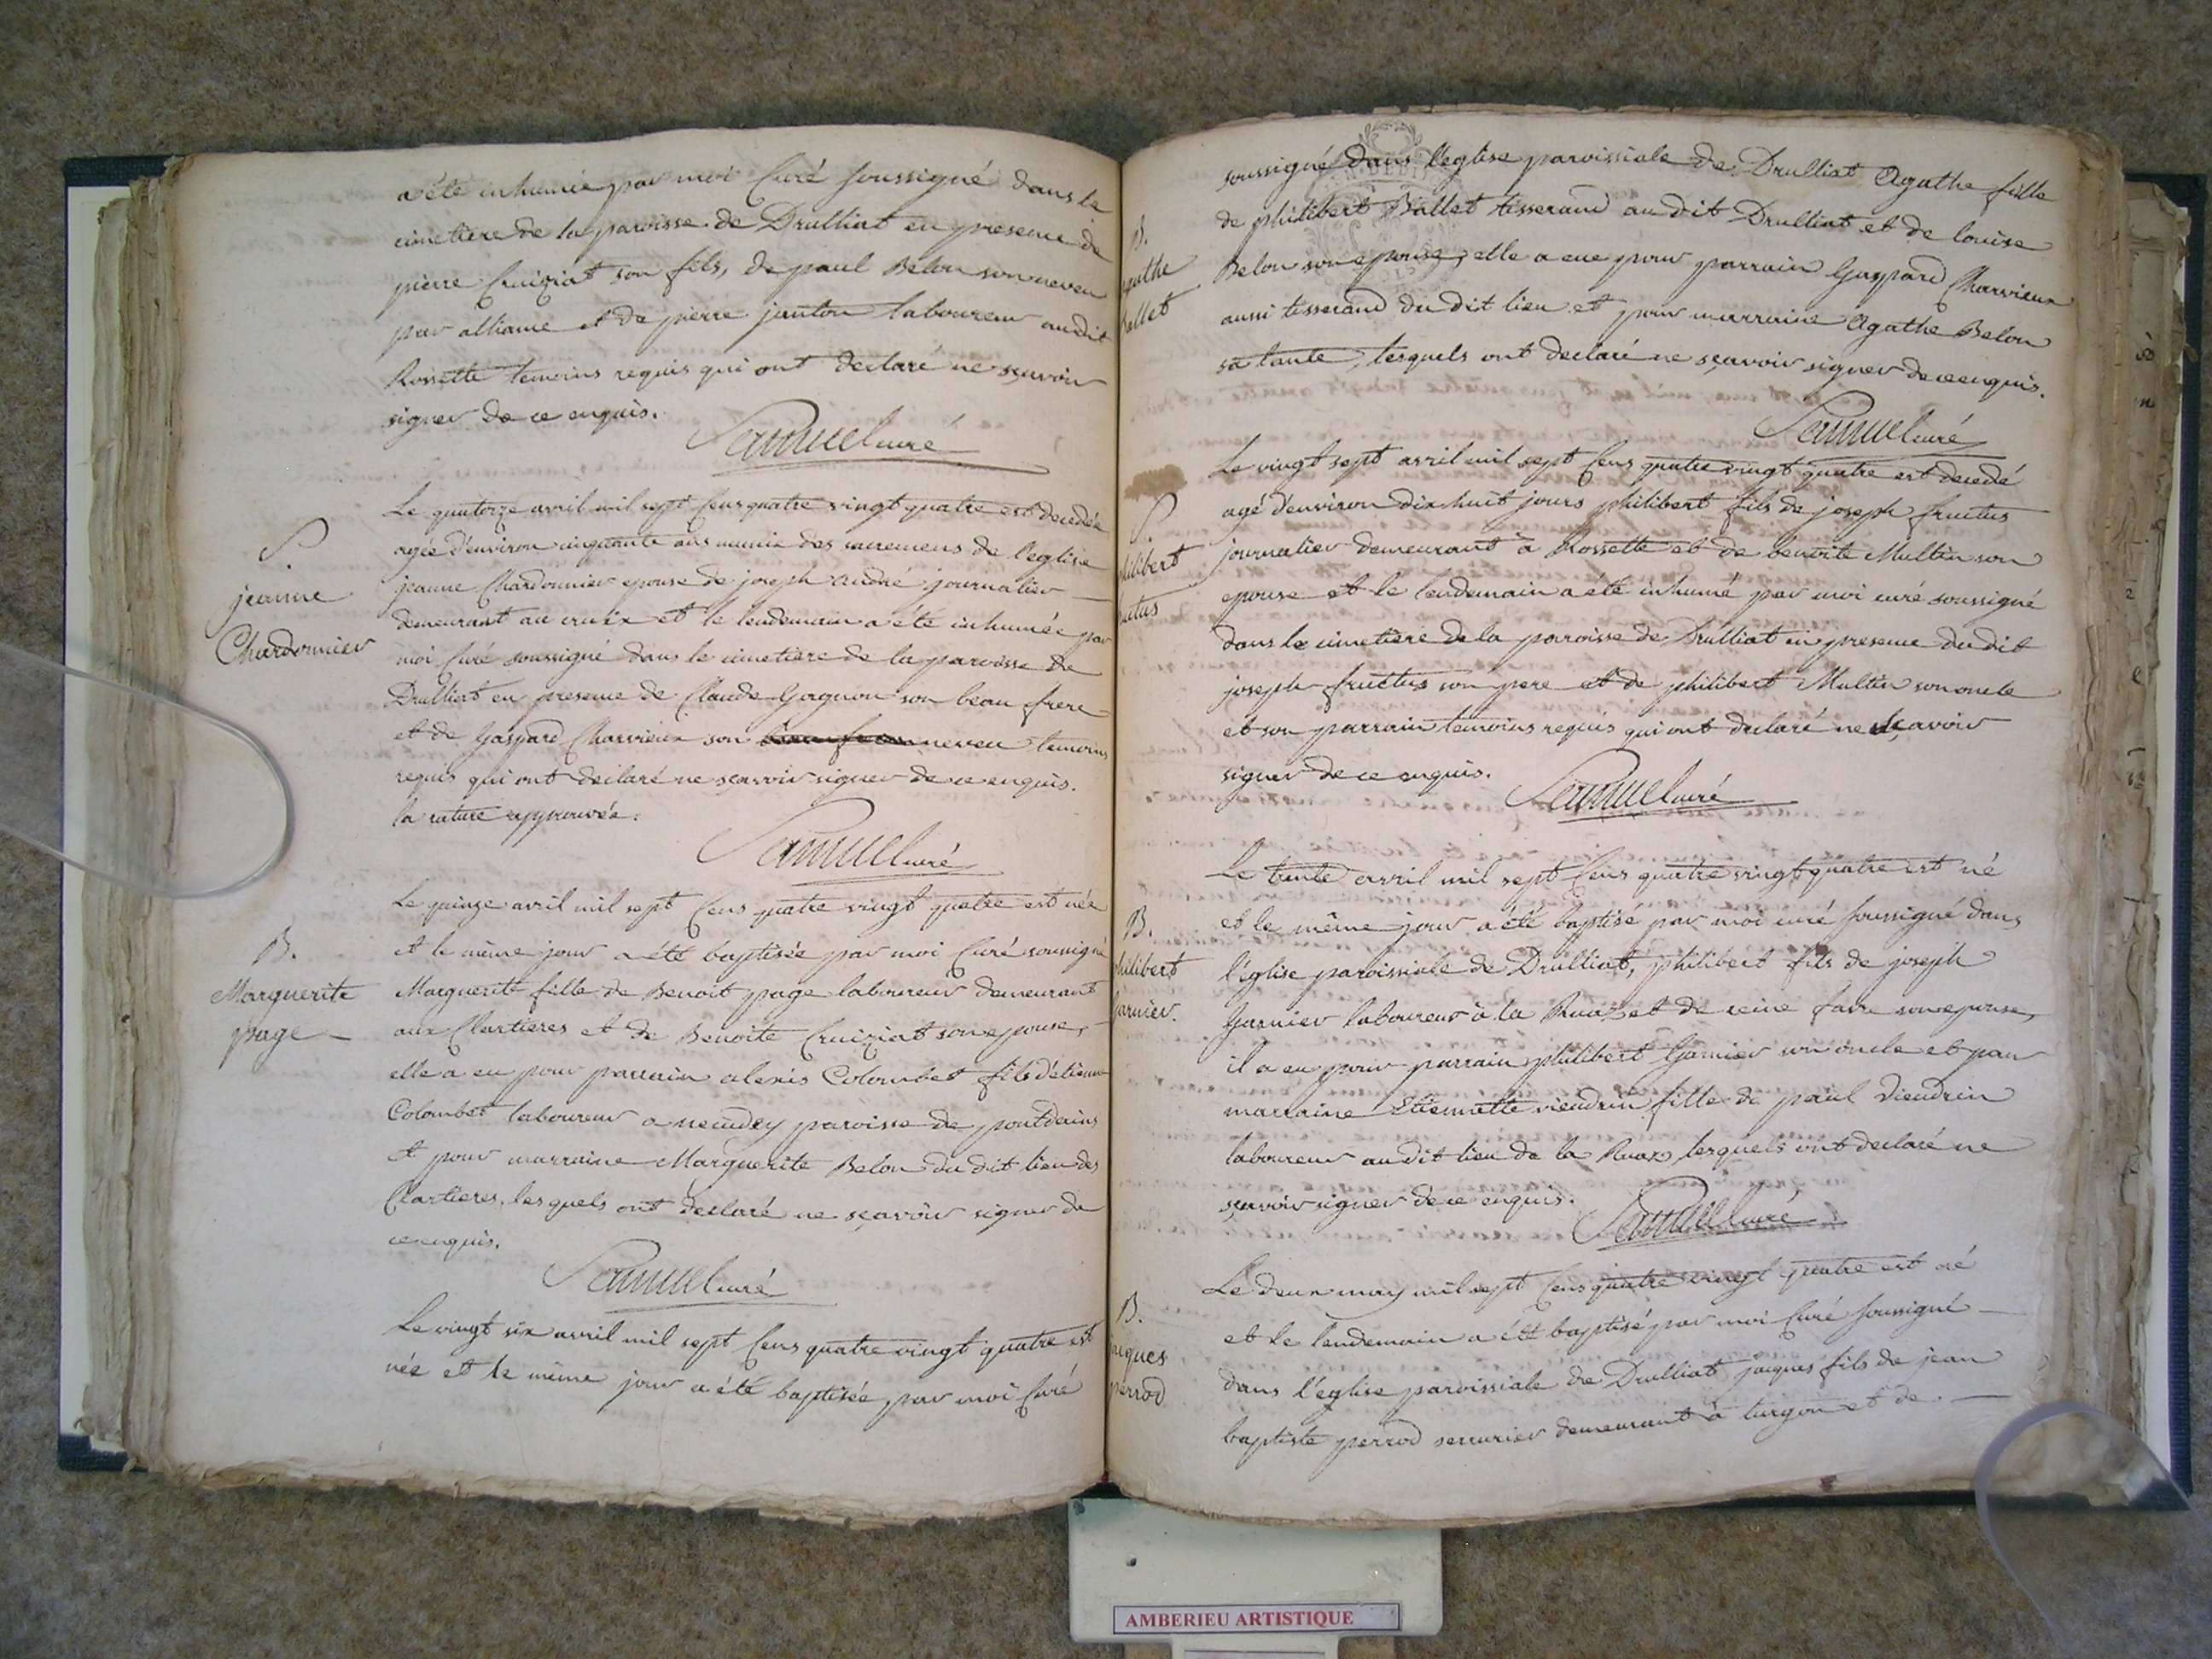 a été inhumée par moi Curé soussigné dans le
cimetiere de la paroisse de Drulliat en presence de
pierre Cruiziat son fils, de paul Belon son neveu
par alliance et de pierre janton laboureur au dit
Rossette temoins requis qui ont declaré ne sçavoir
signer de ce enquis.
Samuel curé
S.
jeanne
Chardonnier
Le quatorze avril mil sept Cens quatre vingt quatre est decedée
agée d'environ cinquante ans munie des sacremens de l'eglise
jeanne Chardonnier epouse de joseph andré journalier
demeurant au cruix et le lendemain a été inhumée par
moi Curé soussigné dans le cimetiere de la paroisse de
Drulliat en presence de Claude Gagnon son beau frere
et de Gaspard Charvieux son neveu temoins
requis qui ont declaré ne sçavoir signer de ce enquis.
la rature approuvée.
Samuel curé
B.
Marguerite
page
Le quinze avril mil sept Cens quatre vingt quatre est née
et le même jour a été baptisée par moi Curé soussigné
Marguerite fille de Benoit page laboureur demeurant
aux Clartieres et de Benoite Cruiziat son epouse,
elle a eu pour parrain alexis Colombet fils d'étienne
Colombet laboureur a neudey paroisse de pontdains
et pour marraine Marguerite Belon du dit lieu des
Clartieres, lesquels ont declaré ne sçavoir signer de
ce enquis.
Samuel curé
Le vingt six avril mil sept Cens quatre vingt quatre est
née et le même jour a été baptisée par moi Curé
B.
agathe
Ballet
soussigné dans l'eglise paroissiale de Drulliat Agathe fille
de philibert Ballet tisserand au dit Drulliat et de louise
Belon son epouse, elle a eue pour parrain Gaspard Charvieux
aussi tisserand du dit lieu et pour marraine Agathe Belon
sa tante, lesquels ont declaré ne sçavoir signer de ce enquis.
Samuel curé
S.
philibert
fructus
Le vingt sept avril mil sept Cens quatre vingt quatre est decedé
agé d'environ dix huit jours philibert fils de joseph fructus
journalier demeurant à Rossette et de benoite Multin son
epouse et le lendemain a été inhumé par moi curé soussigné
dans le cimetiere de la paroisse de Drulliat en presence du dit
joseph fructus son pere et de philibert Multin son oncle
et son parrain temoins requis qui ont declaré ne sçavoir
signer de ce enquis.
Samuel curé
B.
philibert
Garnier.
Le trente avril mil sept Cens quatre vingt quatre est né
et le même jour a été baptisé par moi curé soussigné dans
l'eglise paroissiale de Drulliat, philibert fils de joseph
Garnier laboureur à la Ruaz et de reine favre son epouse,
il a eu pour parrain philibert Garnier son oncle et pour
marraine Etiennette vieudrin fille de paul vieudrin
laboureur au dit lieu de la Ruaz, lesquels ont declaré ne
sçavoir signer de ce enquis.
Samuel curé
B.
jacques
perrod
Le deux may mil sept Cens quatre vingt quatre est né
et le lendemain a été baptisé par moi Curé soussigné
dans l'eglise paroissiale de Drulliat jacques fils de jean
baptiste perrod serrurier demeurant à turgon et de
AMBERIEU ARTISTIQUE